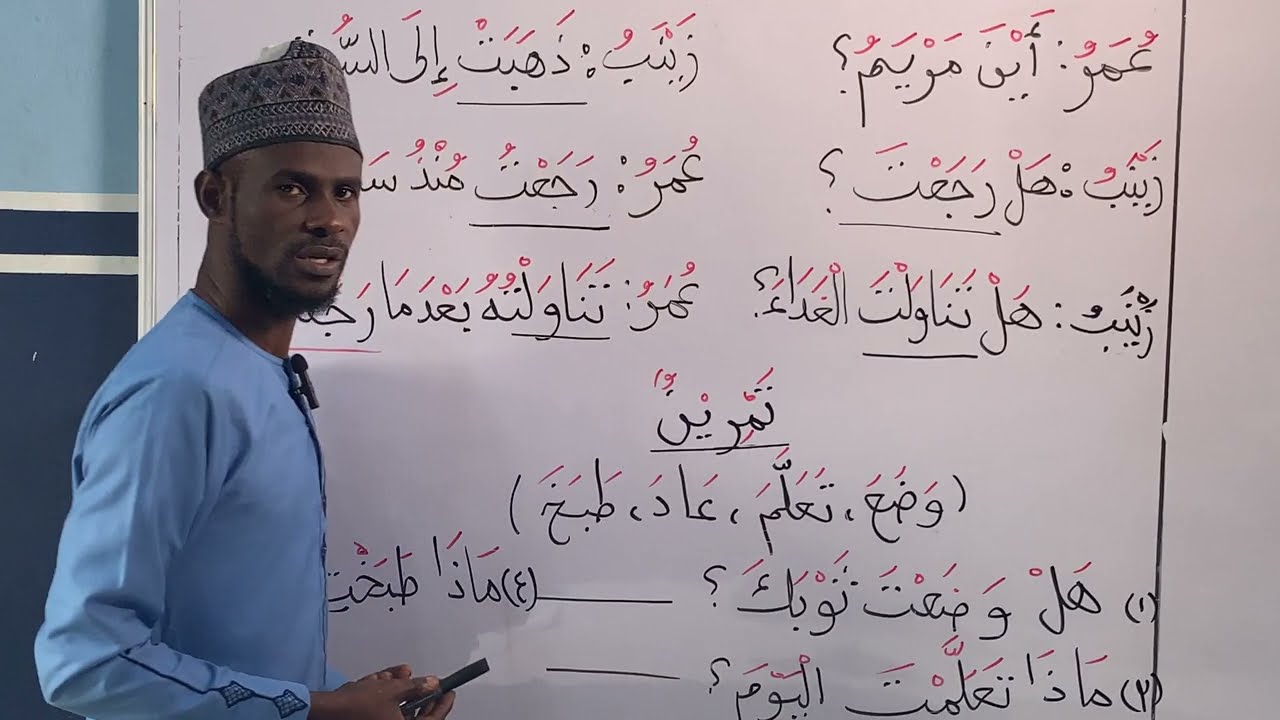 عُمَرُ: أَيْنَ مَرْيَمُ؟ زَيْنَبُ: ذَهَبَتْ إِلَى
زَيْنَبُ: هَلْ رَجَعْتَ؟ عُمَرُ: رَجَعْتُ مُنْذُ
زَيْنَبُ: هَلْ تَنَاوَلْتَ الْغَدَاءَ؟ عُمَرُ: تَنَاوَلْتُهُ بَعْدَمَا
تَمْرِيْنٌ
(وَضَعَ، تَعَلَّمَ، عَادَ، طَبَخَ)
(١) هَلْ وَضَعْتَ ثَوْبَكَ؟ ______ (٤) مَاذَا طَبَخْتِ
مَاذَا تَعَلَّمْتَ الْيَوْمَ؟ ______